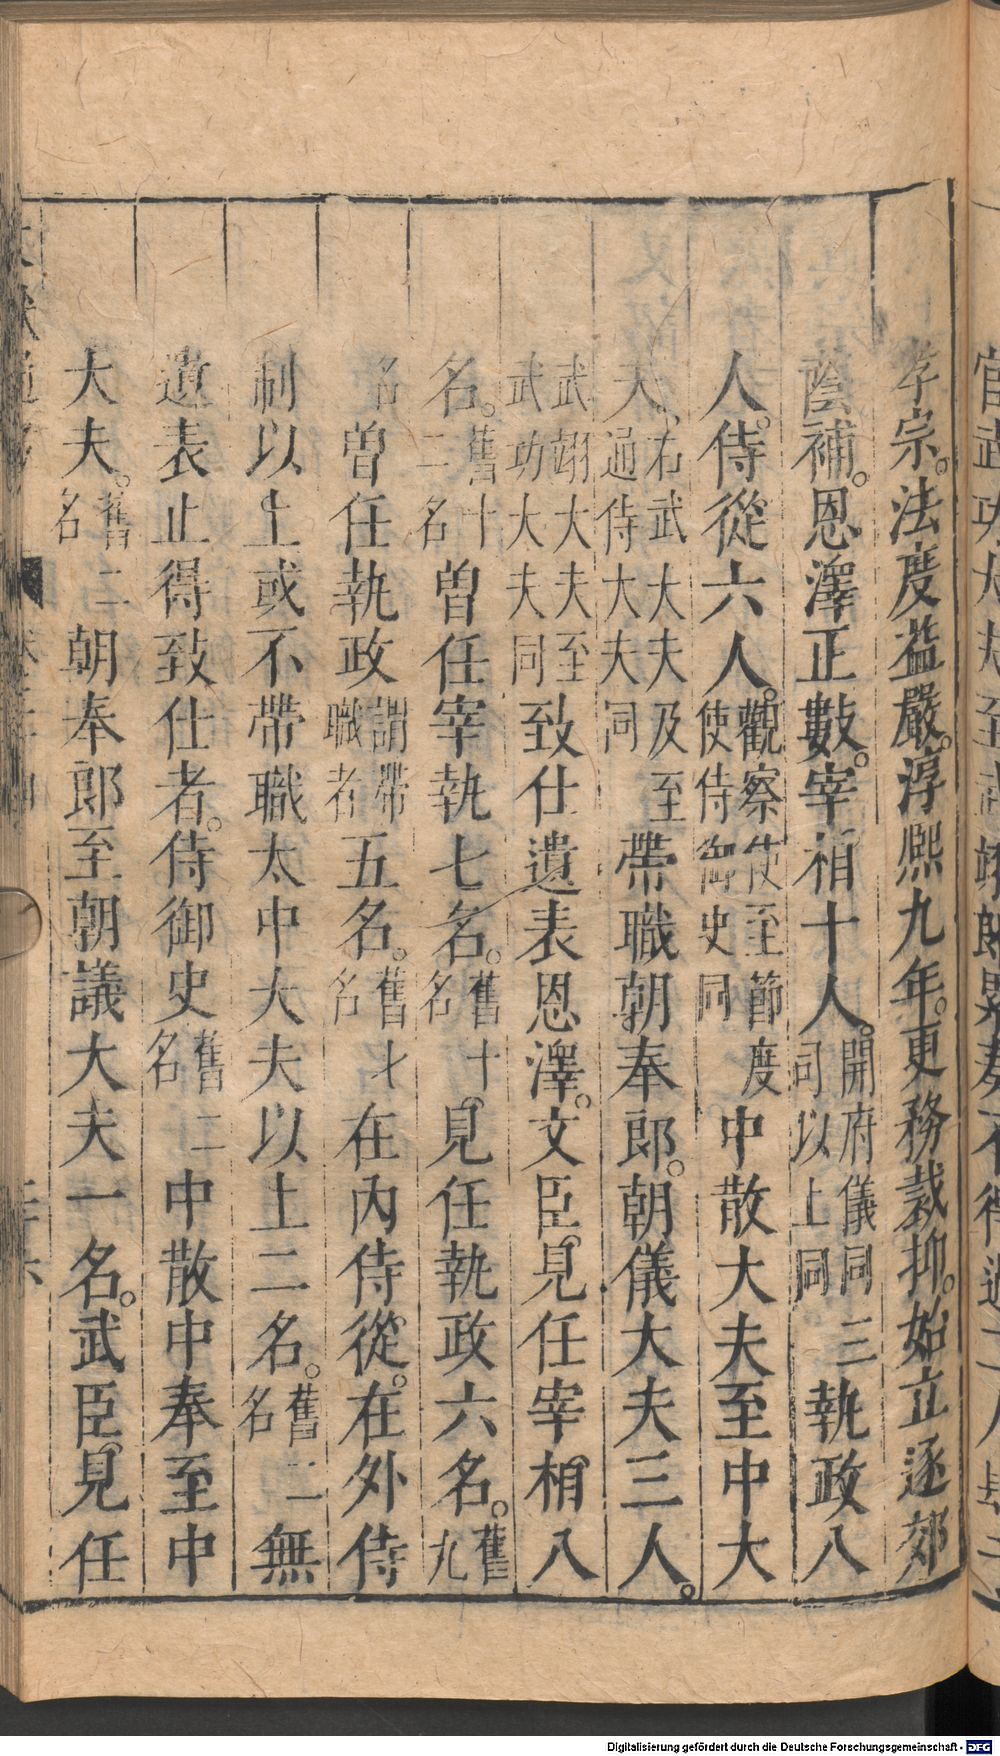 孝宗。法度益嚴。淳熙九年。更務裁抑。始立逐郊
蔭補。恩澤正數。宰相十人。開府儀同三司以上同執政八
人。侍從六人。觀察使至節度使侍御史同中散大夫至中大
夫、右武大夫及至通侍大夫同帶職朝奉郎。朝儀大夫三人。
武翊大夫至武功大夫同致仕遺表恩澤。文臣。見任宰相八
名。舊十二名曽任宰執七名。舊十名見任執政六名。舊九
名曽任執政謂帶職者五名。舊才名在內侍從。在外侍
制以土或不帶職太中大夫以土二名。舊二名無
遺表止得致仕者。侍御史舊二名中散中奉至中
大夫。舊二名朝奉郎至朝議大夫一名。武臣。見任
Digitalisierung gefördert durch die Deutsche Forschungsgemeinschaft - DFG